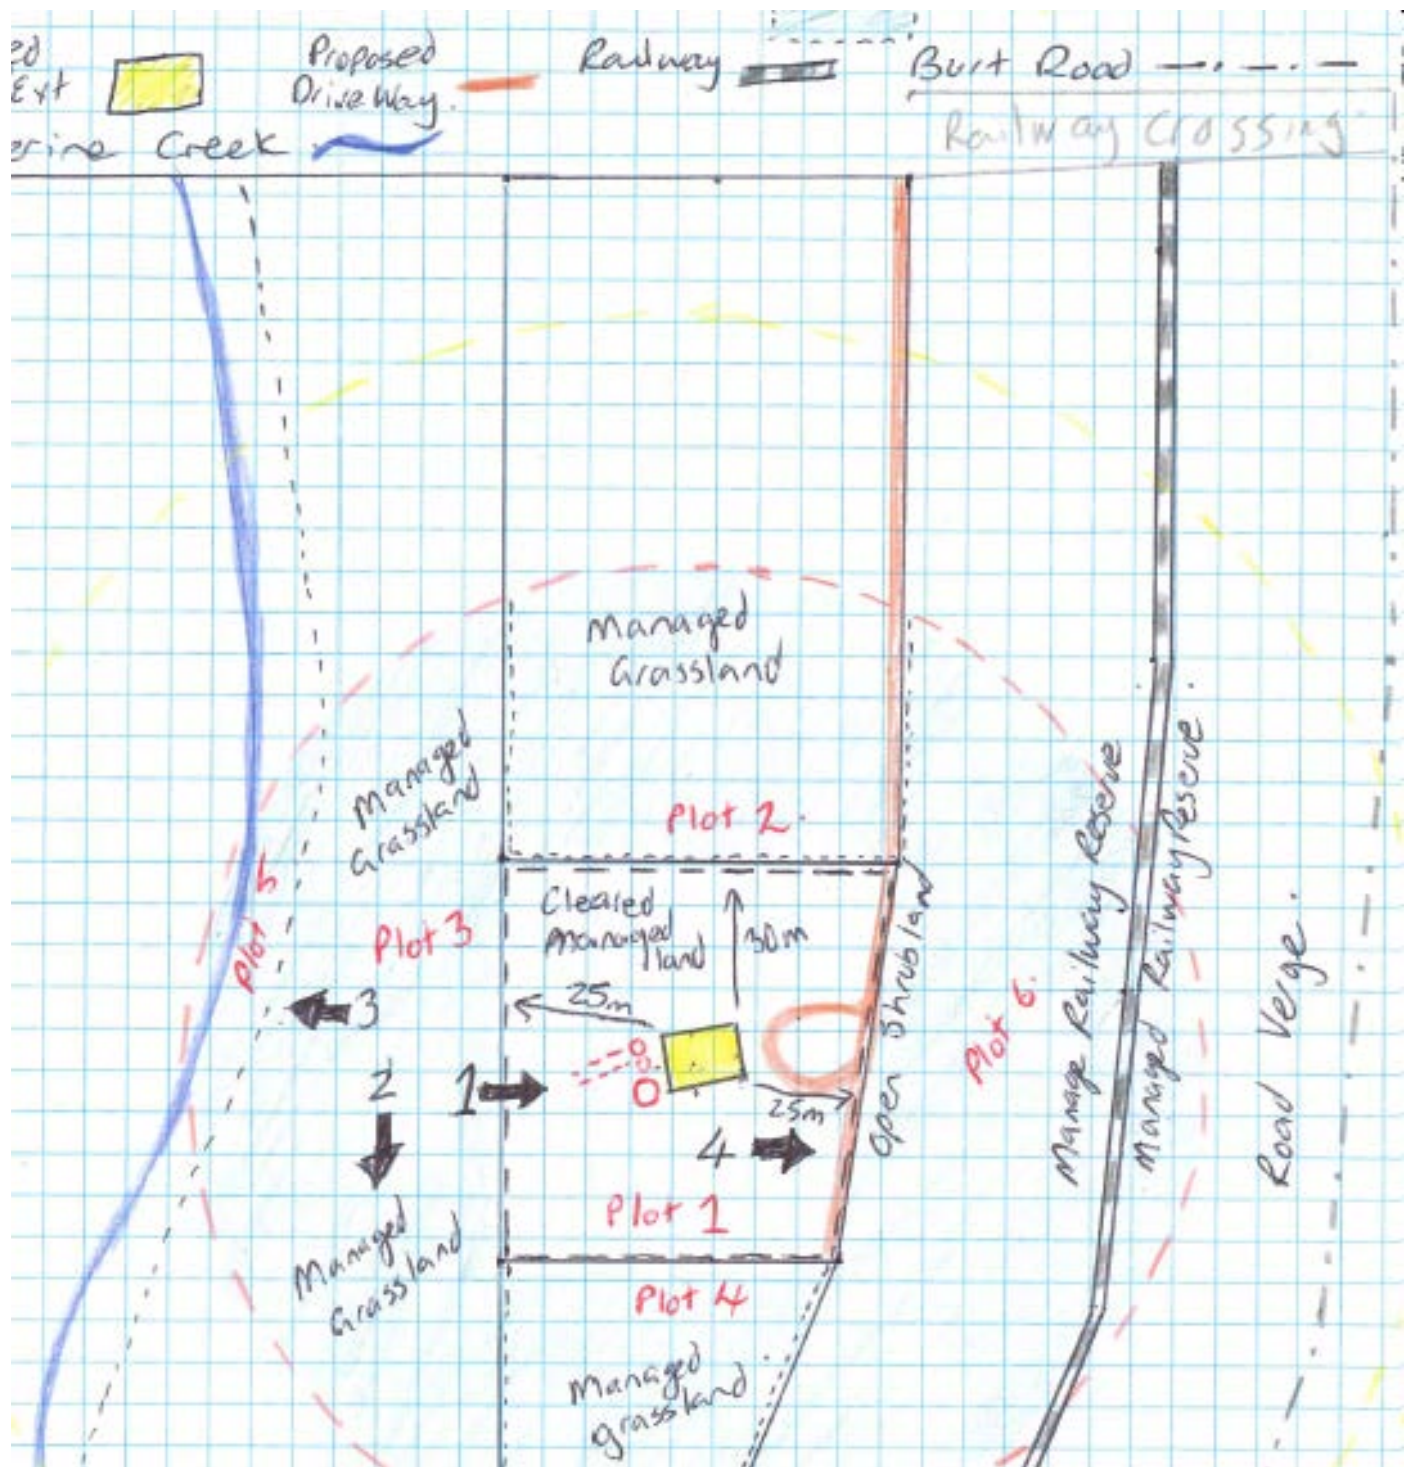 ed
Ext
Proposed
Drive Way.
Railway
Burt Road
erine Creek
Railway Crossing
Managed
Grassland
Managed
Grassland
Plot 2.
Cleared
Managed
land
30m
Plot 5
Plot 3
25m
3
2
1
25m
4
Open Shrubland
Plot 6.
Manage Railway Reserve
Managed Railway Reserve.
Road Verge.
Plot 1
Managed
Grassland
Plot 4
Managed
grassland